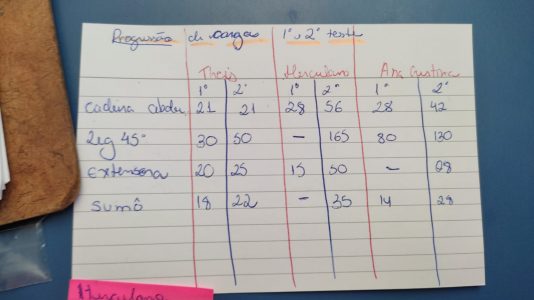 Progressão de cargas 1º e 2º teste
Thais Herculano Ana Cristina
1º 2º 1º 2º 1º 2º
cadeira abdu. 21 21 28 56 28 42
Leg 45º 30 50 - 165 80 130
Extensora 20 25 15 50 - 98
Sumô 18 22 - 35 14 28
Herculano